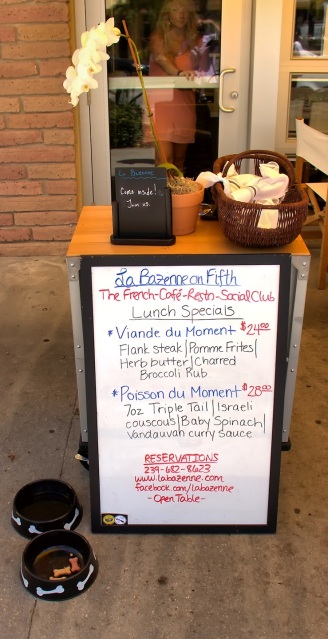 La Bazenne
Come inside!
Join us.
La Bazenne on Fifth
The French-Café-Resto-Social Club
Lunch Specials
*Viande du Moment $24.00
Flank steak|Pomme Frites|
Herb butter|Charred
Broccoli Rub
*Poisson du Moment $28.00
7oz Triple Tail|Israeli
couscous|Baby Spinach|
Vandauvah curry sauce
RESERVATIONS
239-682-8623
www.labazenne.com
facebook.com/labazenne
-Open Table-